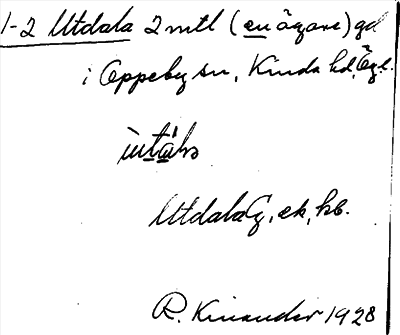 1-2 Utdala 2 mtl (en ägare) gd
i Oppeby sn, Kinda hd, Ög.
Utdala G, ek, kb.
R. Kinander 1928